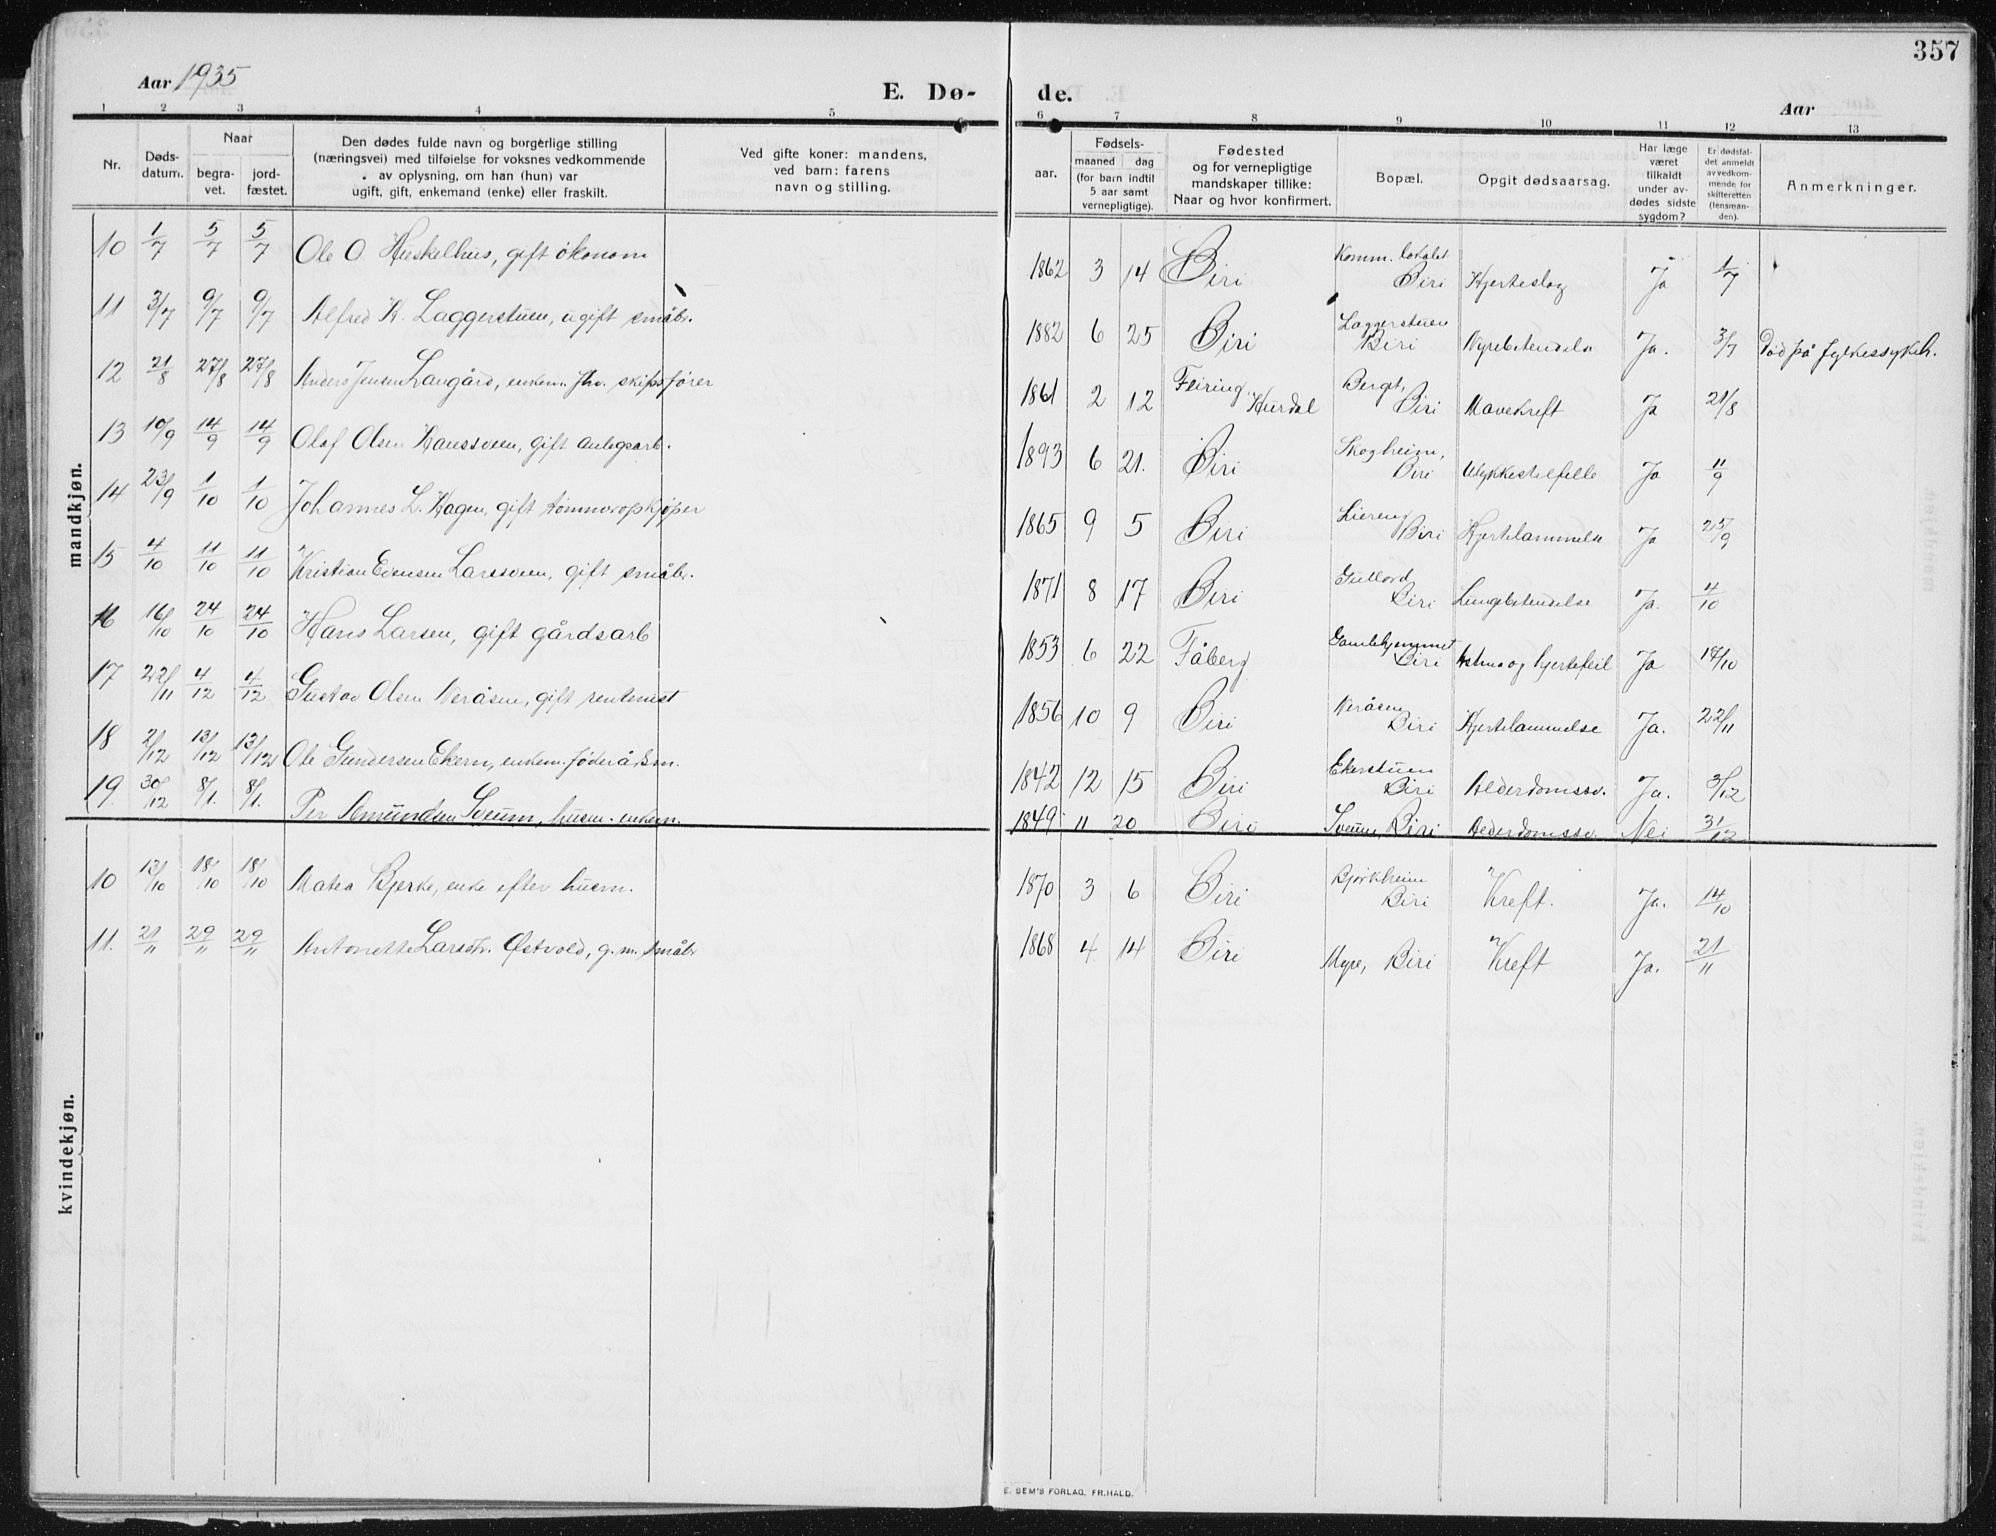 357
Aar 1935
E. Dø-
de.
Aar
1 2 3 4 5
6 7 8 9 10 11 12 13
Nr.
Døds-
datum.
Naar
begra-
vet.
jord-
fæstet.
Den dødes fulde navn og borgerlige stilling
(næringsvei) med tilføielse for voksnes vedkommende
av oplysning, om han (hun) var
ugift, gift, enkemand (enke) eller fraskilt.
Ved gifte koner: mandens,
ved barn: farens
navn og stilling.
aar.
Fødsels-
maaned dag
(for barn indtil
5 aar samt
vernepligtige).
Fødested
og for vernepligtige
mandskaper tillike:
Naar og hvor konfirmert.
Bopæl.
Opgit dødsaarsag.
Har læge
været
tilkaldt
under av-
dødes sidste
sygdom?
Er dødsfal-
det anmeldt
av vedkom-
mende for
skifteretten
(lensman-
den).
Anmerkninger.
mandkjøn.
10 1/7 5/7 5/7 Ole O. Huskelhus, gift økonom 1862 3 14 Biri Komm. lokalet Biri Hjerteslag Ja 1/7
11 3/7 9/7 9/7 Alfred K. Laggerstuen, ugift småbr. 1882 6 25 Biri Laggerstuen Biri Nyrebetendelse Ja. 3/7 Død på fylkessykeh.
12 21/8 27/8 27/8 Anders Jensen Langård, enkem. fhv. skipsfører 1861 2 12 Feiring, Hurdal Berget, Biri Mavekreft Ja 21/8
13 10/9 14/9 14/9 Olaf Olsen Hanssveen, gift anlegsarb. 1893 6 21. Biri Skogheim, Biri Ulykkestilfelle Ja 11/9
14 23/9 1/10 1/10 Johannes L. Hagen, gift tømmeropkjøper 1865 9 5 Biri Liereng Biri Hjertelammelse Ja 25/9
15 4/10 11/10 11/10 Kristian Evensen Larssveen, gift småbr. 1871 8 17 Biri Gullord Biri Lungebetendelse Ja. 4/10
16 16/10 24/10 24/10 Hans Larsen, gift gårdsarb 1853 6 22 Fåberg Gamlehjemmet Biri Astma og hjertefeil Ja 17/10
17 22/11 4/12 4/12 Gustav Olsen Neråsen, gift rentenist 1856 10 9 Biri Neråsen Biri Hjertelammelse Ja. 22/11
18 2/12 13/12 13/12 Ole Gundersen Ekern, enkem. føderåtsm. 1842 12 15 Biri Ekerstuen Biri Alderdomssv. Ja. 3/12
19. 30/12 8/1. 8/1. Per Amundsen Sveum, husm. enkem. 1849 11 20 Biri Sveum, Biri Alderdomssv. Nei 31/12
kvindekjøn.
10 13/10 18/10 18/10 Matea Bjerke, enke efter husm. 1870 3 6 Biri Bjørkheim Biri Kreft. Ja. 14/10
11. 21/11 29/11 29/11 Antonette Larsdtr. Østvold, g. m. småbr 1868 4 14 Biri Myre, Biri Kreft Ja. 21/11
E. SEM'S FORLAG, FR.HALD.